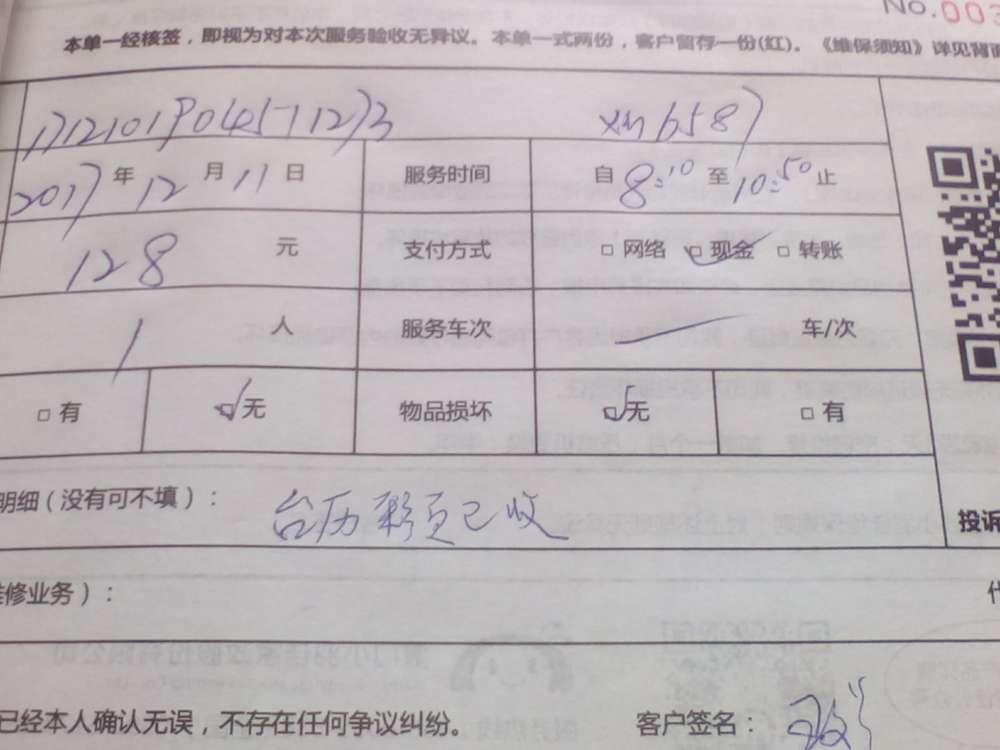 No.003
本单一经核签，即视为对本次服务验收无异议。本单一式两份，客户留存一份(红)。《维保须知》详见背面
xm6587
2017年12月11日 服务时间 自8:10至10:50止
128元 支付方式 □网络 □现金 □转账
1人 服务车次 车/次
□有 □无 物品损坏 □无 □有
明细（没有可不填）： 台历 已收
投诉
维修业务）：
已经本人确认无误，不存在任何争议纠纷。 客户签名：